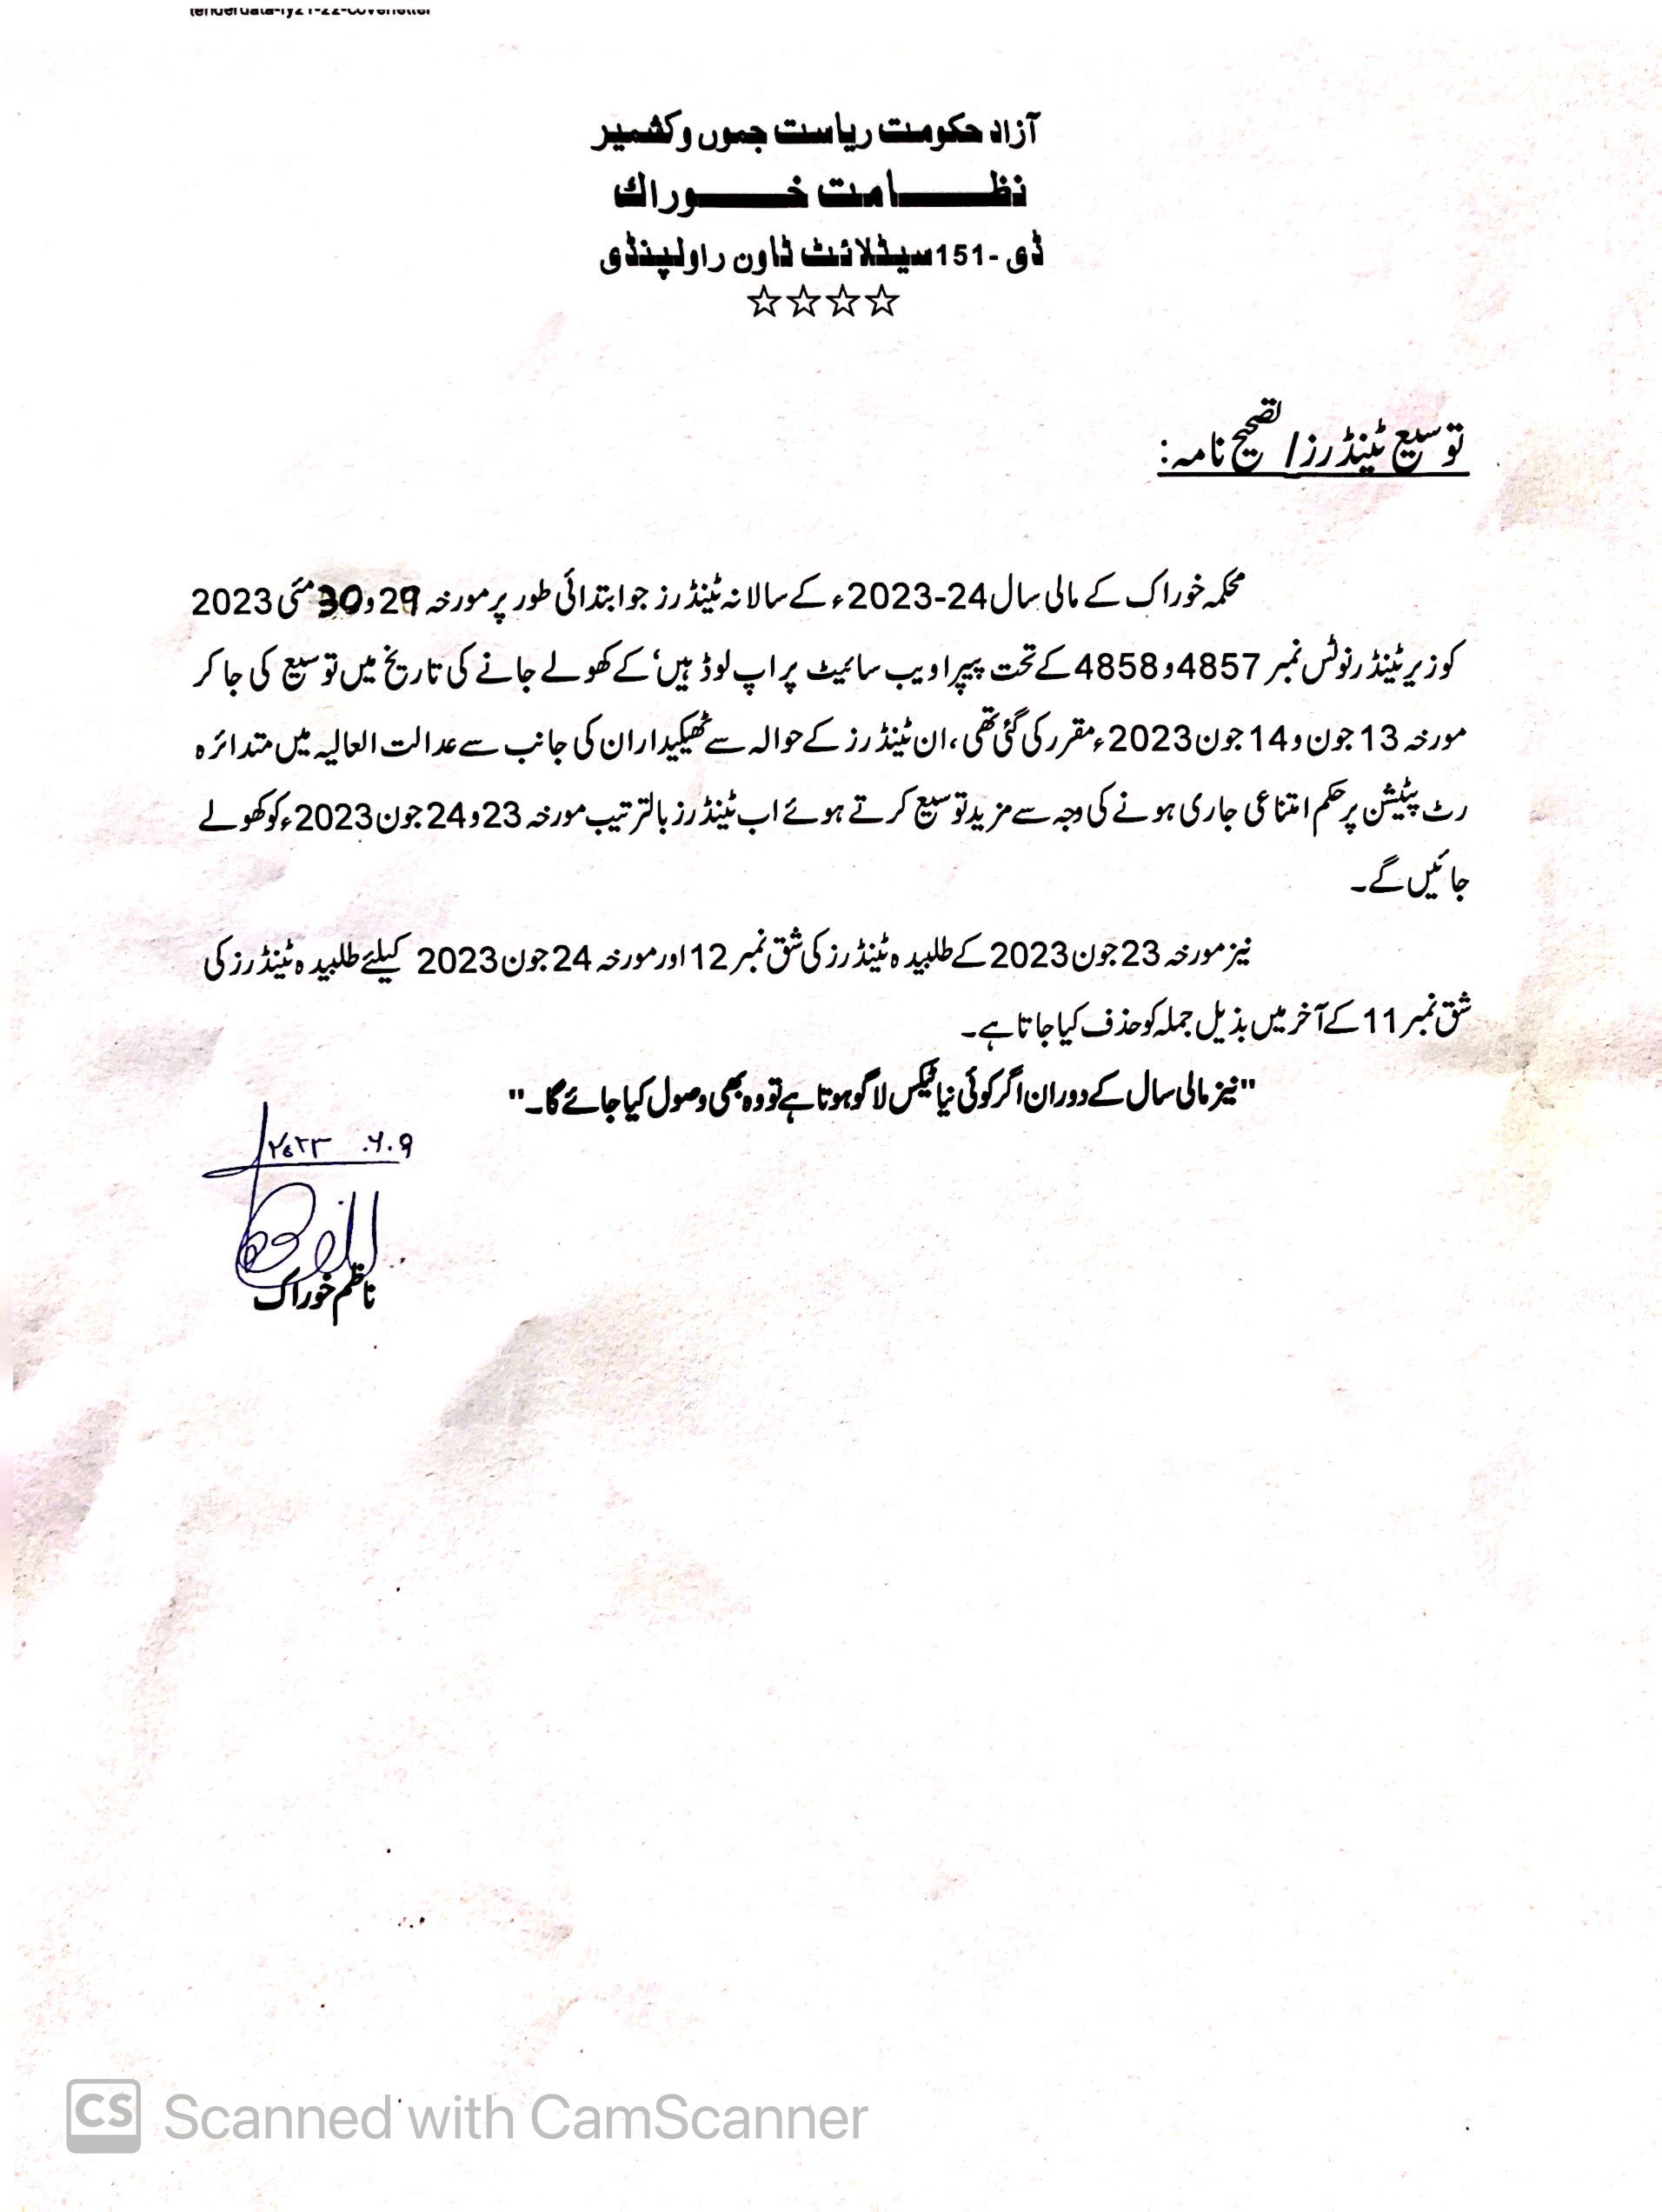 tenderdata-fy21-22-coverletter
آزاد حکومت ریاست جموں وکشمیر
نظامت خوراک
ڈی -151سیٹلائٹ ٹاون راولپنڈی
☆☆☆☆
توسیع ٹینڈرز/ تصحیح نامہ:
محکمہ خوراک کے مالی سال 24-2023ء کے سالانہ ٹینڈرز جو ابتدائی طور پر مورخہ 29 و 30 مئی 2023
کو زیر ٹینڈر نوٹس نمبر 4857 و 4858 کے تحت پیپرا ویب سائیٹ پر اپ لوڈ ہیں، کے کھولے جانے کی تاریخ میں توسیع کی جا کر
مورخہ 13 جون و 14 جون 2023ء مقرر کی گئی تھی، ان ٹینڈرز کے حوالہ سے ٹھیکیداران کی جانب سے عدالت العالیہ میں متدائرہ
رٹ پٹیشن پر حکم امتناعی جاری ہونے کی وجہ سے مزید توسیع کرتے ہوئے اب ٹینڈرز بالترتیب مورخہ 23 و 24 جون 2023ء کو کھولے
جائیں گے۔
نیز مورخہ 23 جون 2023 کے طلبیدہ ٹینڈرز کی شق نمبر 12 اور مورخہ 24 جون 2023 کیلئے طلبیدہ ٹینڈرز کی
شق نمبر 11 کے آخر میں بذیل جملہ کو حذف کیا جاتا ہے۔
"نیز مالی سال کے دوران اگر کوئی نیا ٹیکس لاگو ہوتا ہے تو وہ بھی وصول کیا جائے گا۔"
۹.۶. ۲۰۲۳
ناظم خوراک
CS Scanned with CamScanner